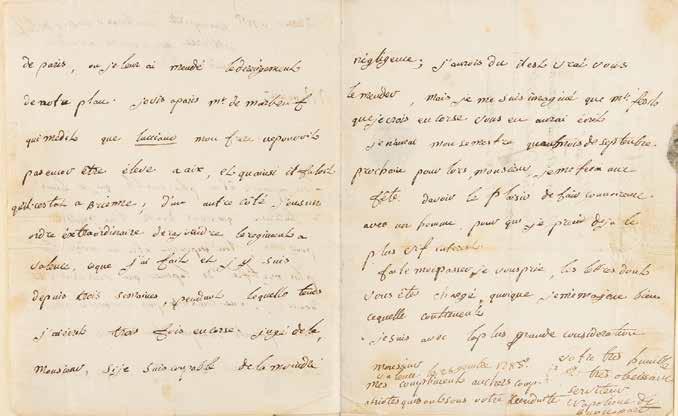 de paris, ou je leur ai mandé le derangement
de notre plan. je vis apais mr. de marbeuf
qui me dit que lucciano mon frere ne pouvoit
pas encor être éleve a aix, et qu
qu'il restat a Brienne, d'un autre côté j'eus un
ordre éxtraordinaire de rejoindre le regiment a
valence, ce que j'ai fait et j'y suis
depuis trois semaines, pendant lequelle tems
j'ai écrit trois fois en corse. jugé de la,
monsieur, si je suis coupable de la moindre
négligence; j'aurois du il est vrai vous
le mander, mais je me suis imaginé que mr. fesch
que je crois en corse vous en aurai écrit
je n'aurai mon semestre qu'au mois de septembre
prochain pour lors, monsieur, je me ferai une
fête d'avoir le plaisir de faire connoissance
avec un homme, pour qui je prend deja le
plus vif interest
faite moi passer je vous prie, les lettres dont
vous êtes chargé, quoique je m'imagine bien
ce quelle contiennent
je suis avec la plus grande consideration
monsieur votre très humble
valence, le 25 1785. & très obeissant
mes compliments au chers comp serviteur
atriotes qui sont sous votre conduitte Napolione di
Buonapart